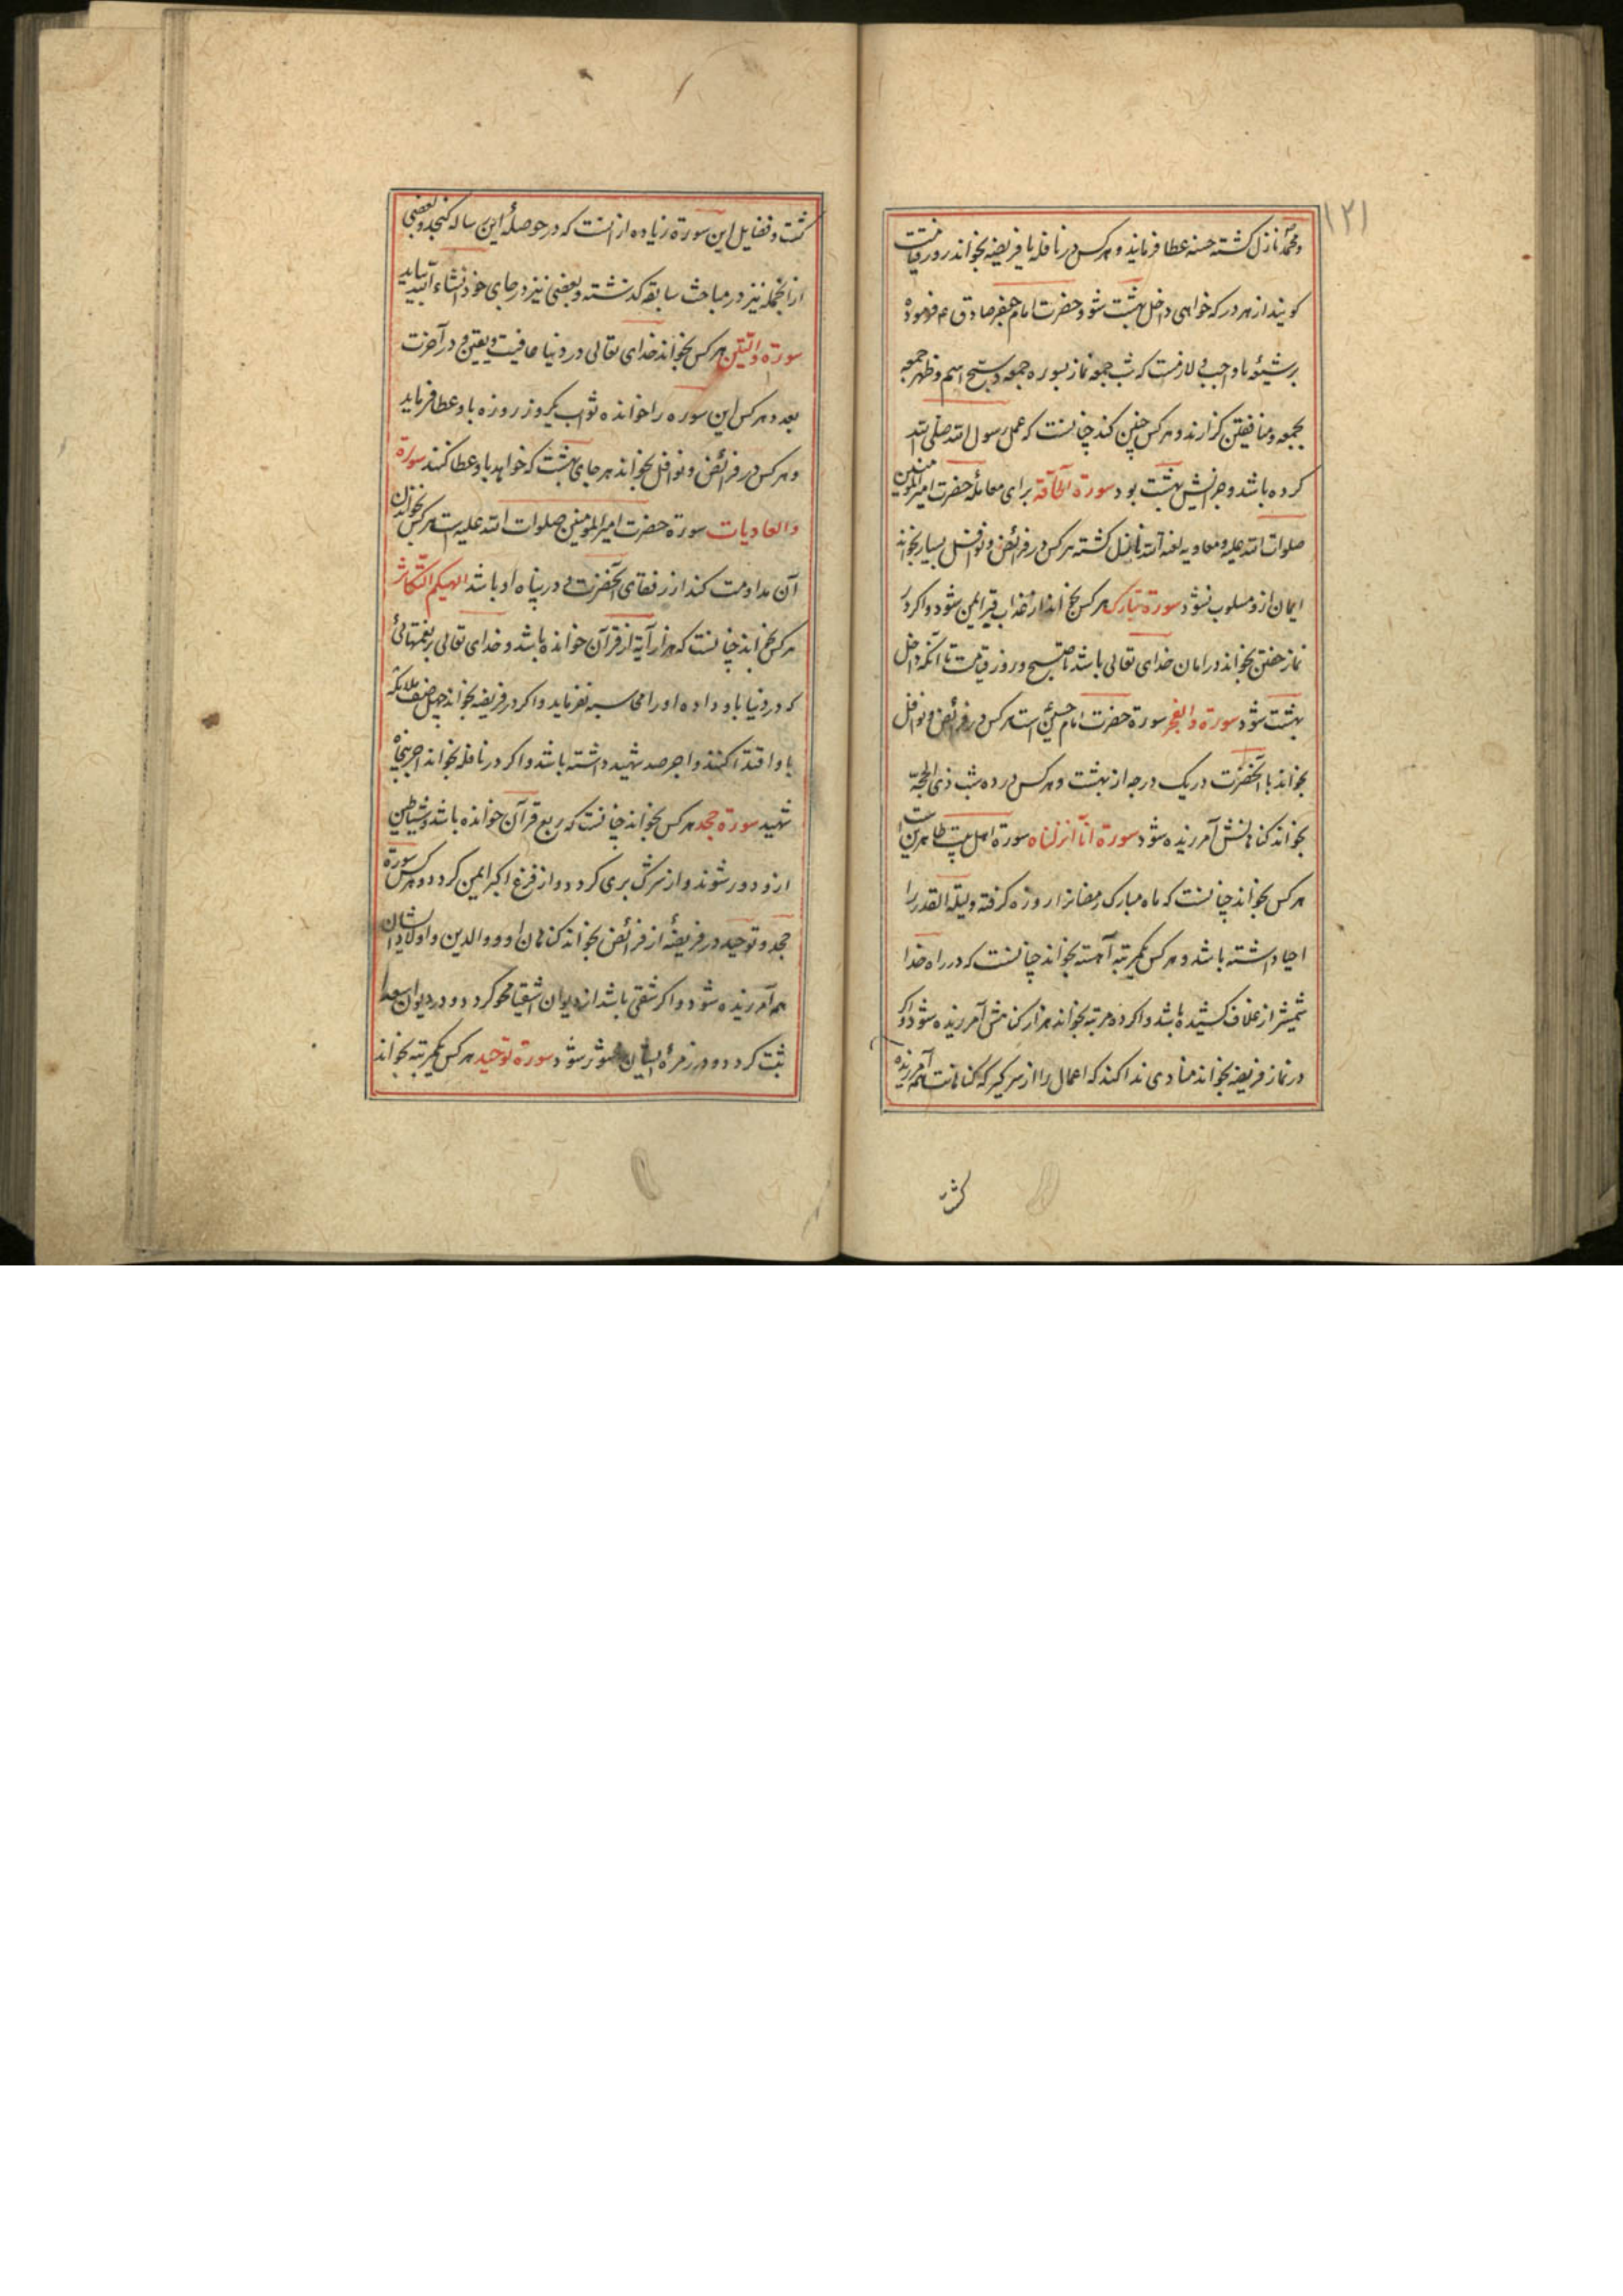 ۱۲۱
و محمد نازل کشته حسنه عطا فرماید و هرکس در نافله یا فریضه بخواند روز قیامت
کویند از هر در که خواهی داخل بهشت شو و حضرت امام جعفر صادق ع فرموده
بر شیعهٔ ما واجب و لازمست که شب جمعه نماز بسوره جمعه و سبح اسم و ظهر جمعه
بجمعه و منافقین کزارند و هرکس چنین کند چنانست که عمل رسول الله صلی الله
کرده باشد و جزایش بهشت بود سورة الحاقة برای معاملهٔ حضرت امیرالمومنین
صلوات الله علیه و معاویه لعنه الله نازل کشته هرکس در فرائض و نوافل بسیار بخواند
ایمان ازو مسلوب نشود سورة تبارک هرکس بخواند از عذاب قبر ایمن شود و اکر در
نماز خفتن بخواند در امان خدای تعالی باشد تا صبح و روز قیامت تا آنکه داخل
بهشت شود سورة والفجر سورة حضرت امام حسین است هرکس در فرائض و نوافل
بخواند با آنحضرت در یک درجه از بهشت و هرکس در ده شب ذی الحجه
بخواند کناهانش آمرزیده شود سورة انا انزلناه سورة اهل بیت طاهرین است
هرکس بخواند چنانست که ماه مبارک رمضانرا روزه کرفته و لیلة القدر را
احیا داشته باشد و هرکس یکمرتبه آهسته بخواند چنانست که در راه خدا
شمشیر از غلاف کشیده باشد و اکر ده مرتبه بخواند هزار کناهش آمرزیده شود و اکر
در نماز فریضه بخواند منادی ندا کند که اعمال را از سر کیر که کناهانت همه آمرزیده
کشت و فضایل این سورة زیاده از انست که در حوصلهٔ این رساله کنجد و بعضی
از آنجمله نیز در مباحث سابقه کذشته و بعضی نیز در جای خود انشاء الله بیاید
سورة والتین هرکس بخواند خدای تعالی در دنیا عافیت و یقین و در آخرت
بعدد هرکس این سوره را خوانده ثواب یکروز روزه باو عطا فرماید
و هرکس در فرائض و نوافل بخواند هر جای بهشت که خواهد باو عطا کنند سورة
والعادیات سورة حضرت امیرالمومنین صلوات الله علیه است هرکس بخواندن
آن مداومت کند از رفقای آنحضرت و در پناه او باشد الهیکم التکاثر
هرکس بخواند چنانست که هزار آیة از قرآن خوانده باشد و خدای تعالی بر نعمتهائی
که در دنیا باو داده او را محاسبه نفرماید و اکر در فریضه بخواند چهل صف ملائکه
باو اقتدا کنند و اجر صد شهید داشته باشد و اکر در نافله بخواند اجر پنجاه
شهید سورة جحد هرکس بخواند چنانست که ربع قرآن خوانده باشد و شیاطین
ازو دور شوند و از شرک بری کردد و از فزع اکبر ایمن کردد و هرکس سورة
جحد و توحید در فریضهٔ از فرائض بخواند کناهان او و والدین و اولاد ایشان
همه آمرزیده شود و اکر شقی باشد از دیوان اشقیا محو کردد و در دیوان سعدا
ثبت کردد و در زمرهٔ ایشان محشور شود سورة توحید هرکس یکمرتبه بخواند